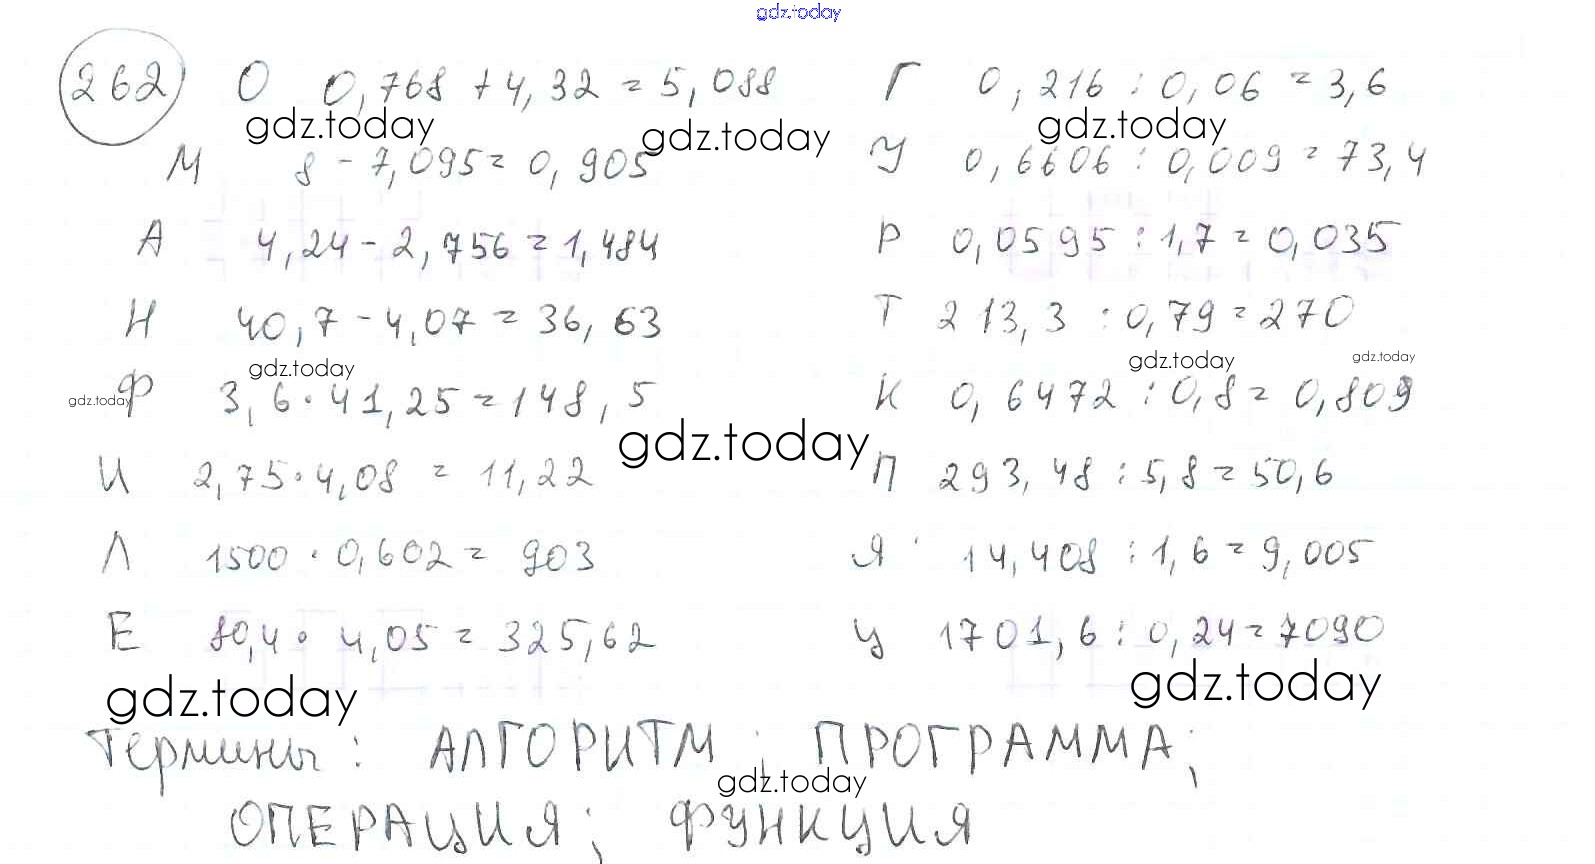 gdz.today
262 О 0,768 + 4,32 = 5,088 Г 0,216 : 0,06 = 3,6
gdz.today gdz.today gdz.today
М 8 - 7,095 = 0,905 У 0,6606 : 0,009 = 73,4
А 4,24 - 2,756 = 1,484 Р 0,0595 : 1,7 = 0,035
Н 40,7 - 4,07 = 36,63 Т 213,3 : 0,79 = 270
gdz.today gdz.today gdz.today
Ф 3,6 · 41,25 = 148,5 К 0,6472 : 0,8 = 0,809
gdz.today gdz.today
И 2,75 · 4,08 = 11,22 П 293,48 : 5,8 = 50,6
Л 1500 · 0,602 = 903 Я 14,408 : 1,6 = 9,005
Е 80,4 · 4,05 = 325,62 Ц 1701,6 : 0,24 = 7090
gdz.today gdz.today
Термины : АЛГОРИТМ ; ПРОГРАММА ;
gdz.today
ОПЕРАЦИЯ ; ФУНКЦИЯ